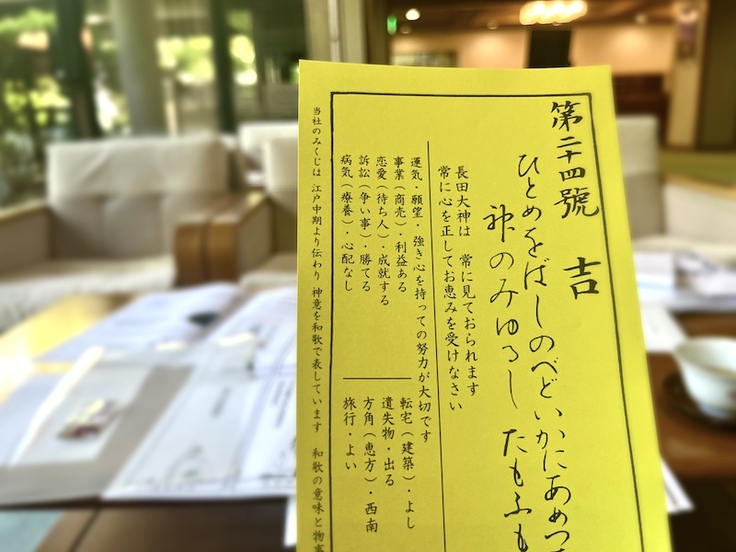 第二十四號 吉
ひとめをばしのべどいかにあめつ
神のみゆるし たもふも
長田大神は 常に見ておられます
常に心を正してお恵みを受けなさい
運気・願望・強き心を持っての努力が大切です
事業(商売)・利益ある
恋愛(待ち人)・成就する
訴訟(争い事)・勝てる
病気(療養)・心配なし
転宅(建築)・よし
遺失物・出る
方角(恵方)・西南
旅行・よい
当社のみくじは 江戸中期より伝わり 神意を和歌で表しています 和歌の意味と物事